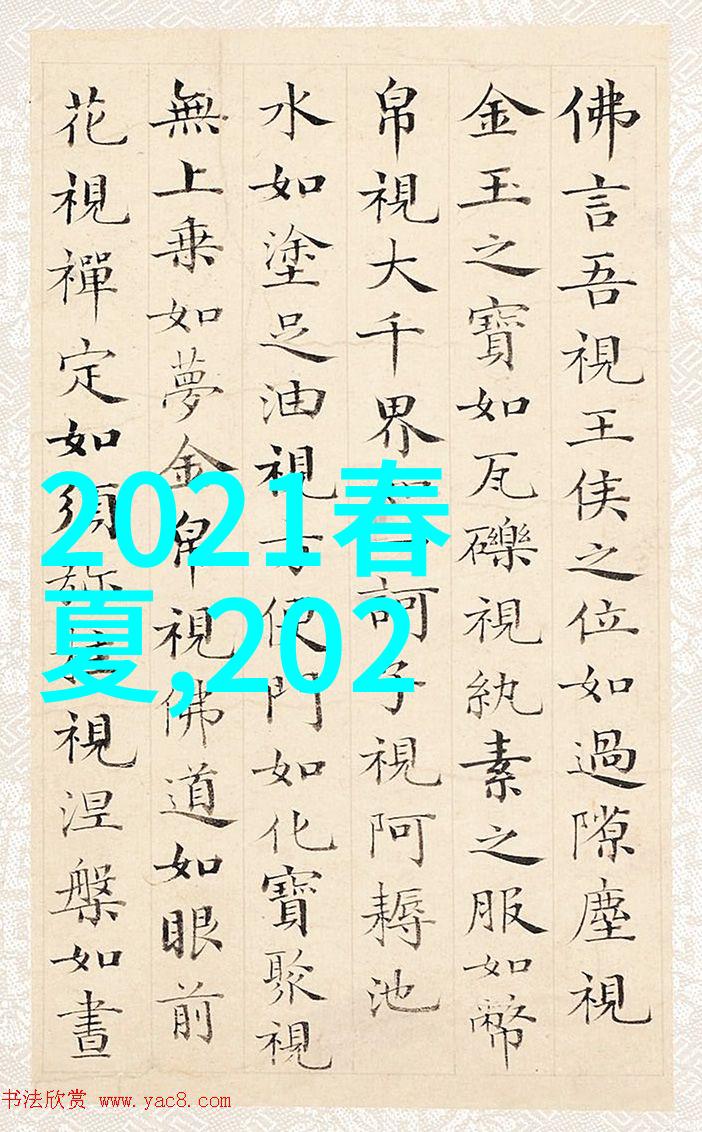 佛言吾視王侯之位如過隙塵視
金玉之寶如瓦礫視紈素之服如幣
帛視大千界如一訶子視阿耨池
水如塗足油視方便門如化寶聚視
無上乗如夢金帛視佛道如眼前
花視禪定如須弥柱視涅槃如晝
2021春
夏,202
书法欣赏 www.yac8.com